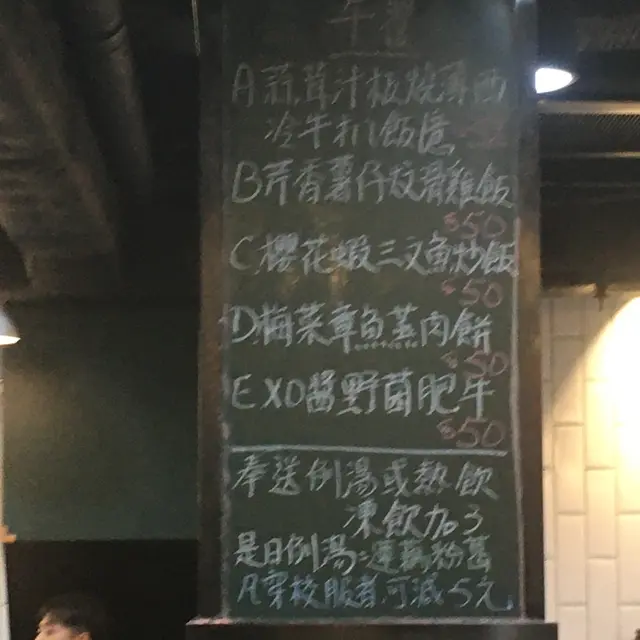 午餐
B芹香薯仔炆滑雞飯
$50
C櫻花蝦三文魚炒飯
$50
D梅菜章魚蒸肉餅
$50
E XO醬野菌肥牛
$50
奉送例湯或熱飲
凍飲加3
是日例湯:蓮藕粉葛
凡穿校服者可減5元